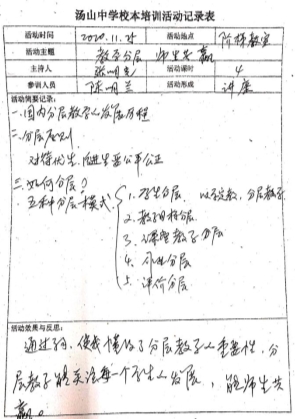 汤山中学校本培训活动记录表
活动时间 2020.11.25 活动地点 阶梯教室
活动主题 教学分层 师生共赢
主持人 张明 活动课时 4
参训人员 陈明兰 活动形成 讲座
活动简要记录:
一.国内分层教学的发展历程
二.分层原则
对待优生、后进生要公平公正
三.如何分层?
五种分层模式 1.学生分层 以定教,分层教学
2.教学目标分层
3.课堂教学分层
4.作业分层
5.评价分层
活动效果与反思:
通过学习,使我懂得了分层教学的重要性,分
层教学能关注每一个学生的发展,能师生共
赢。